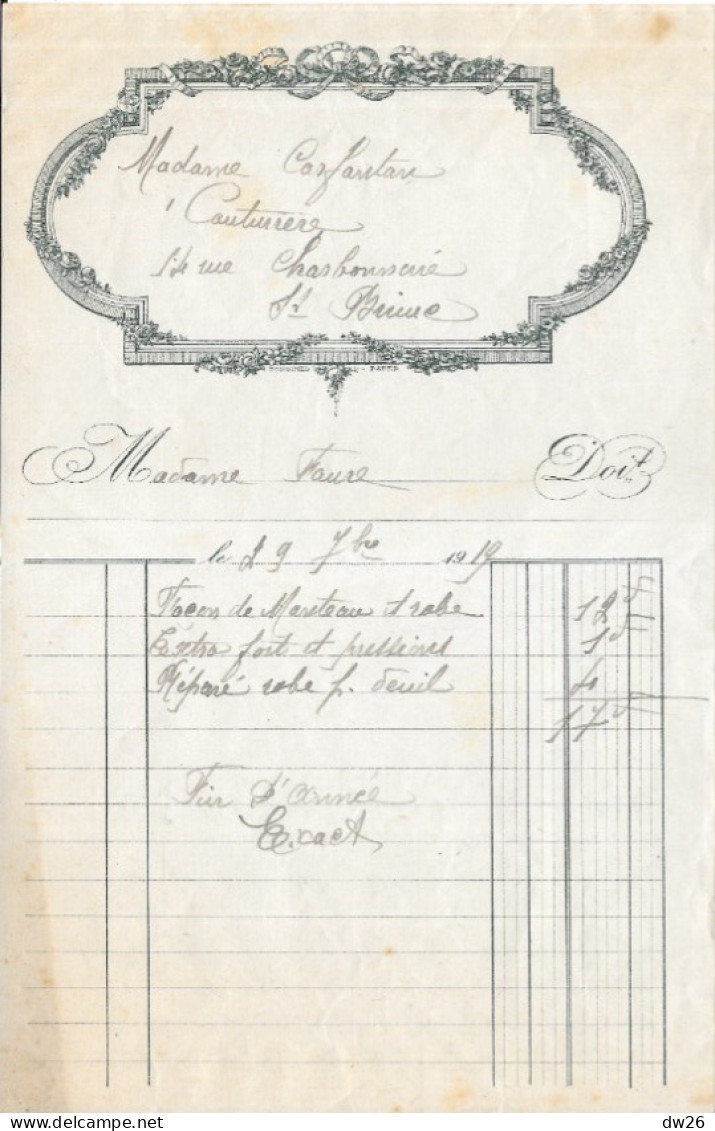 Madame Carfantan
Couturière
14 rue Charbonnerie
St Brieuc
Madame Faure Doit
le 29 7bre 1919
Façon de Manteau et robe 12 f
Extra fort et pressions 1 f
Réparé robe p. deuil 4
17 f
Fin d'année
Exact
dw26